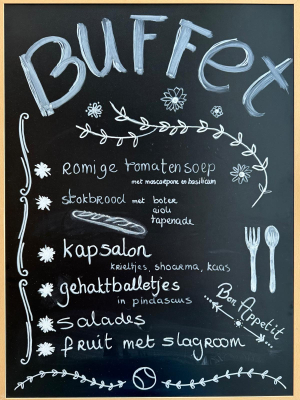 BUFFET
Romige tomatensoep
met mascarpone en basilicum
stokbrood met boter
aioli
tapenade
kapsalon
krieltjes, shoarma, kaas
gehaktballetjes
in pindasaus
salades
fruit met slagroom
Bon Appetit